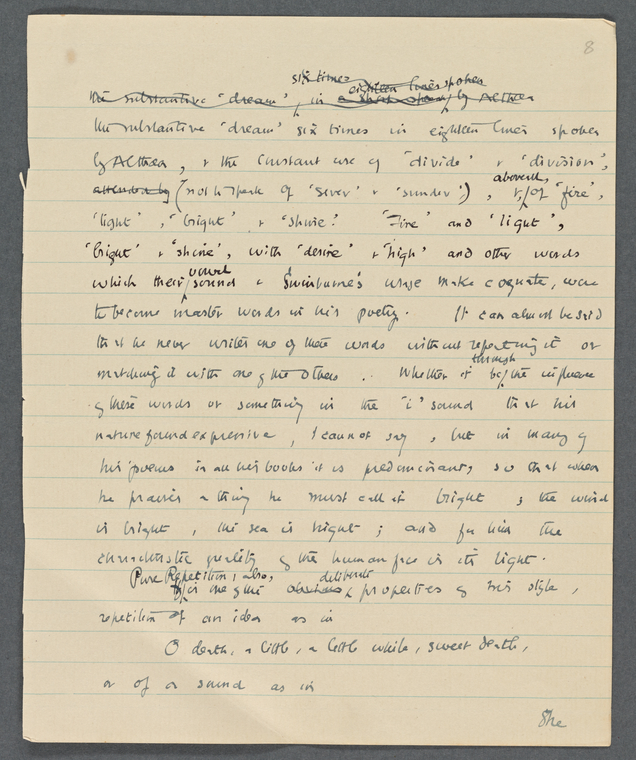 8
six times eighteen lines spoken
the substantive 'dream', in a short by Althea
the substantive 'dream' six times in eighteen lines spoken
by Althea, & the constant use of 'divide' & 'division',
above all,
attended by (not to speak of 'sever' & 'sunder'), & of 'fire',
'light', 'bright' & 'shine'. 'Fire' and 'light',
'bright' & 'shine', with 'desire' & 'high' and other words
vowel
which their sound & Swinburne's usage make cognate, were
to become master words in his poetry. It can almost be said
that he never writes one of these words without repeating it or
through
matching it with one of the others. Whether it be the influence
of these words or something in the 'i' sound that his
nature found expressive, I cannot say, but in many of
his poems in all his books it is predominant, so that when
he praises a thing he must call it bright; the wind
is bright, the sea is bright; and for him the
characteristic quality of the human face is its light.
Pure Repetition, also, deliberate
is one of the properties of his style,
repetition of an idea as in
O death, a little, a little while, sweet death,
or of a sound as in
She